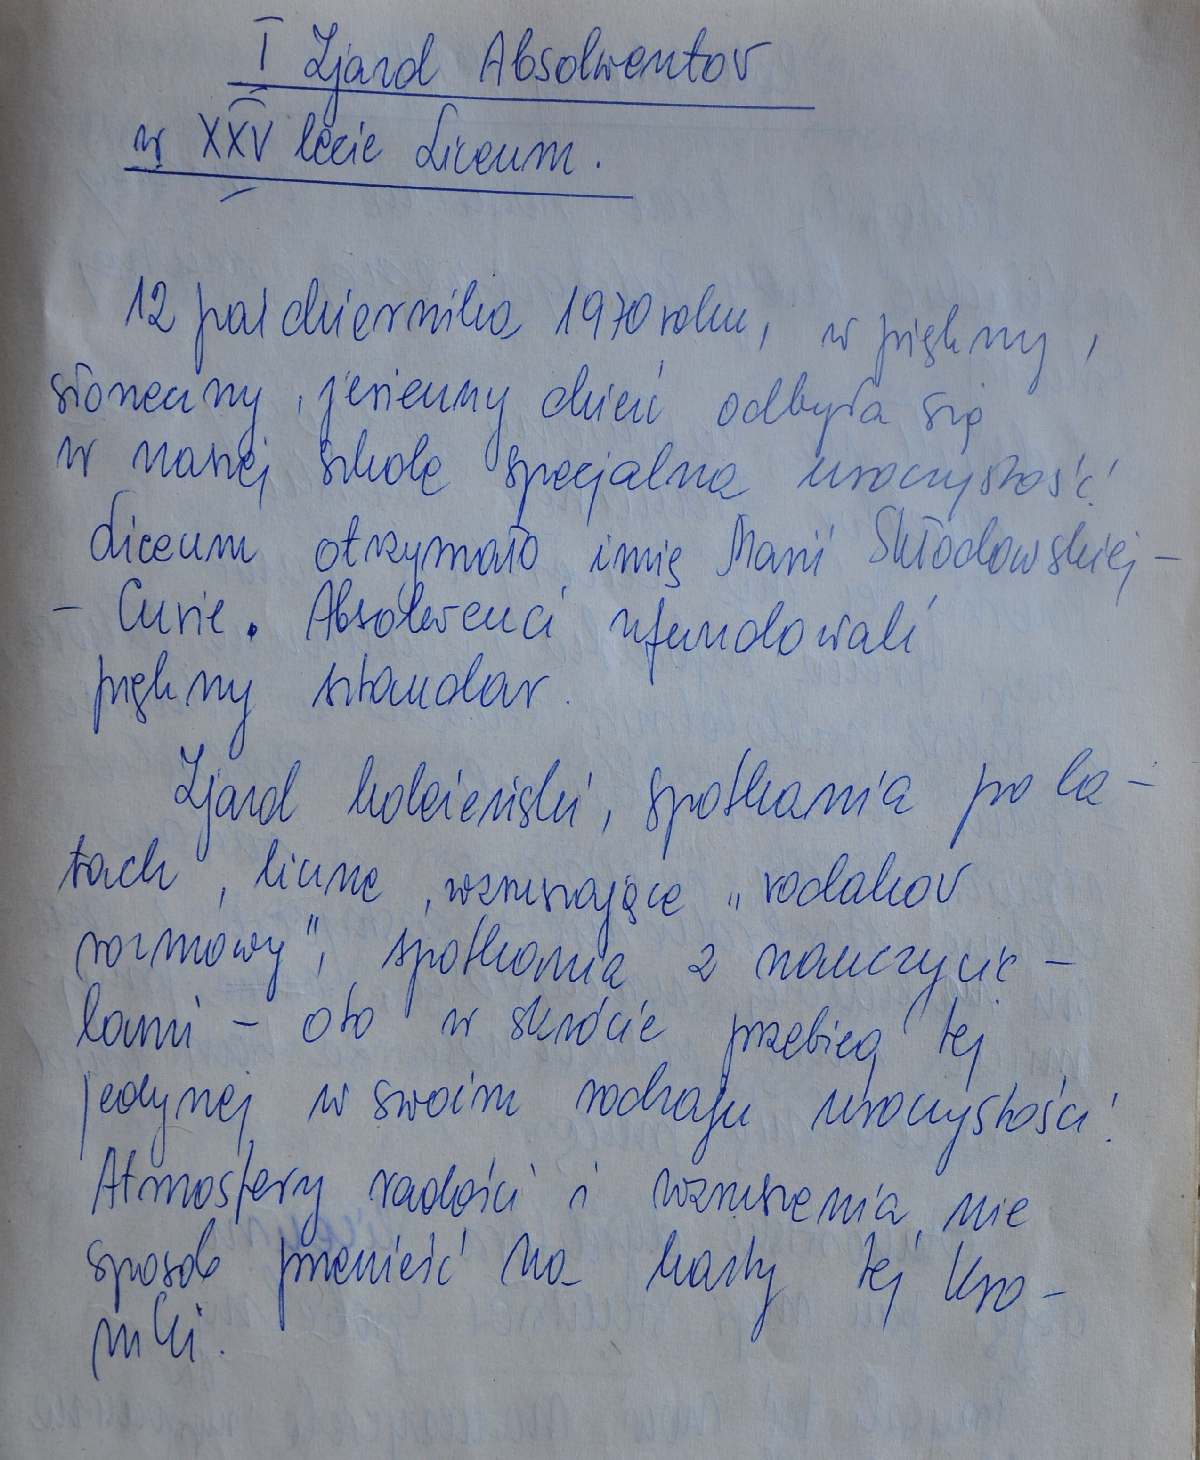 I Zjazd Absolwentów
w XXV lecie Liceum.
12 października 1970 roku, w piękny,
słoneczny, jesienny dzień odbyła się
w naszej szkole specjalna uroczystość!
Liceum otrzymało imię Marii Skłodowskiej-
- Curie. Absolwenci ufundowali
piękny sztandar.
Zjazd koleżeński, spotkania po la-
tach, liczne, wzruszające „rodaków
rozmowy", spotkania z nauczycie-
lami - oto w skrócie przebieg tej
jedynej w swoim rodzaju uroczystości!
Atmosfery radości i wzruszenia nie
sposób przenieść na karty tej kro-
niki.